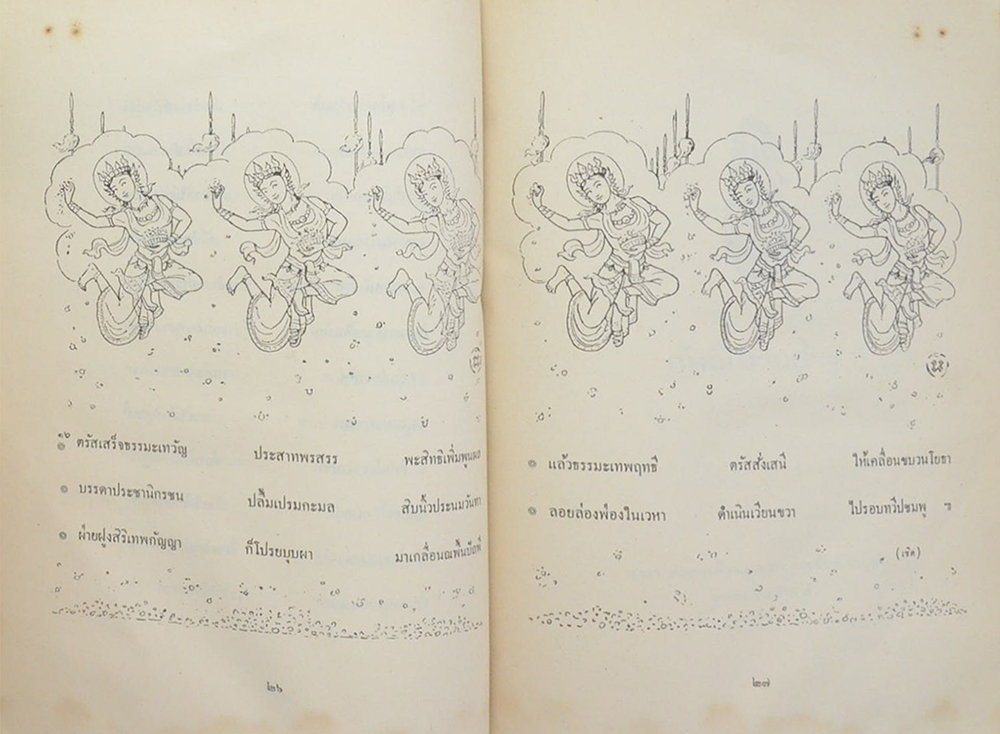 ๑๖ ตรัสเสร็จธรรมะเทวัญ ประสาทพรสรร พะสิทธิเพิ่มพูนผล
๏ บรรดาประชานิกรชน ปลื้มเปรมกะมล สิบนิ้วประนมวันทา
๏ ฝ่ายฝูงสิริเทพกัญญา ก็โปรยบุบผา มาเกลื่อนณพื้น
๒๖
๏ แล้วธรรมะเทพฤทธี ตรัสสั่งเสนี ให้เคลื่อนขบวนโยธา
๏ ลอยล่องฟ่องในเวหา ดำเนินเวียนขวา ไปรอบทวีปชมพู ฯ
(เชิด)
๒๗